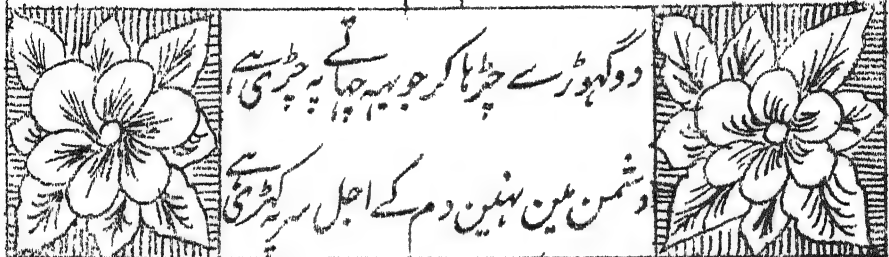 دو گہوڑسے چڑہا کر جو یہہ چہاتے پہ چڑہی ہے
دشمن مین نہین دم کے اجل سر پہ کھڑی ہے